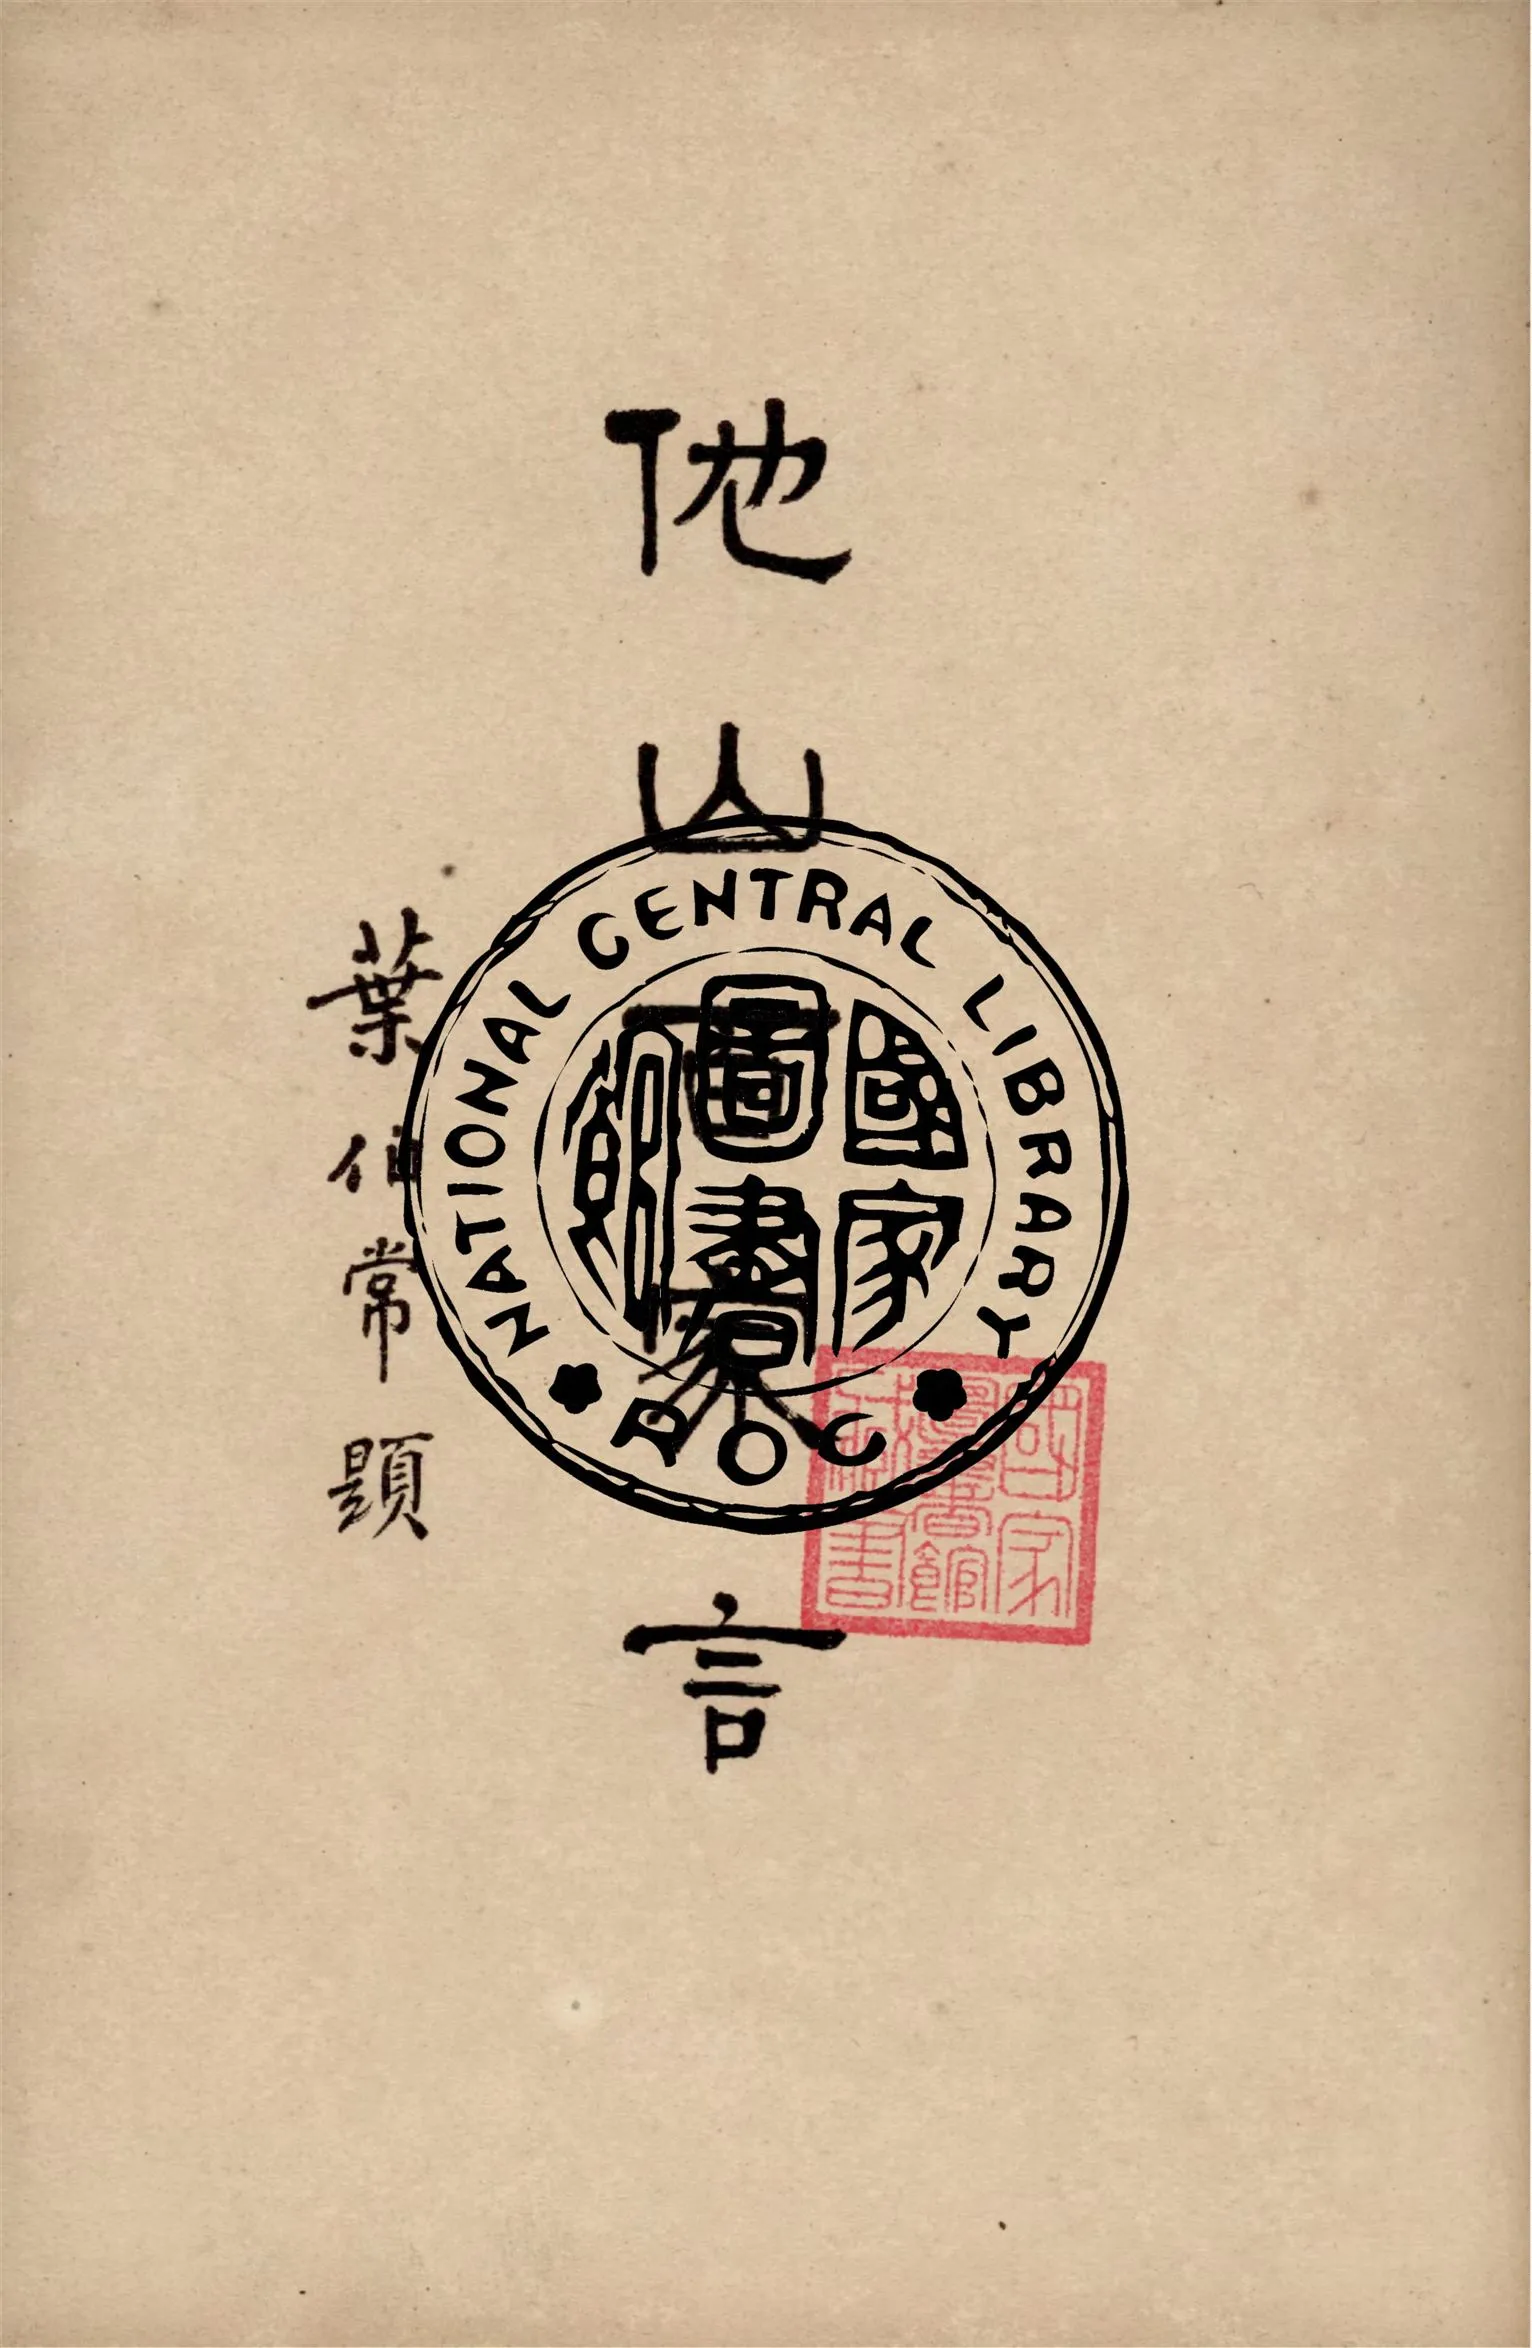 他山百家言
葉伯常題
NATIONAL CENTRAL LIBRARY
ROC
國家
圖書
館
國家
圖書館
藏書